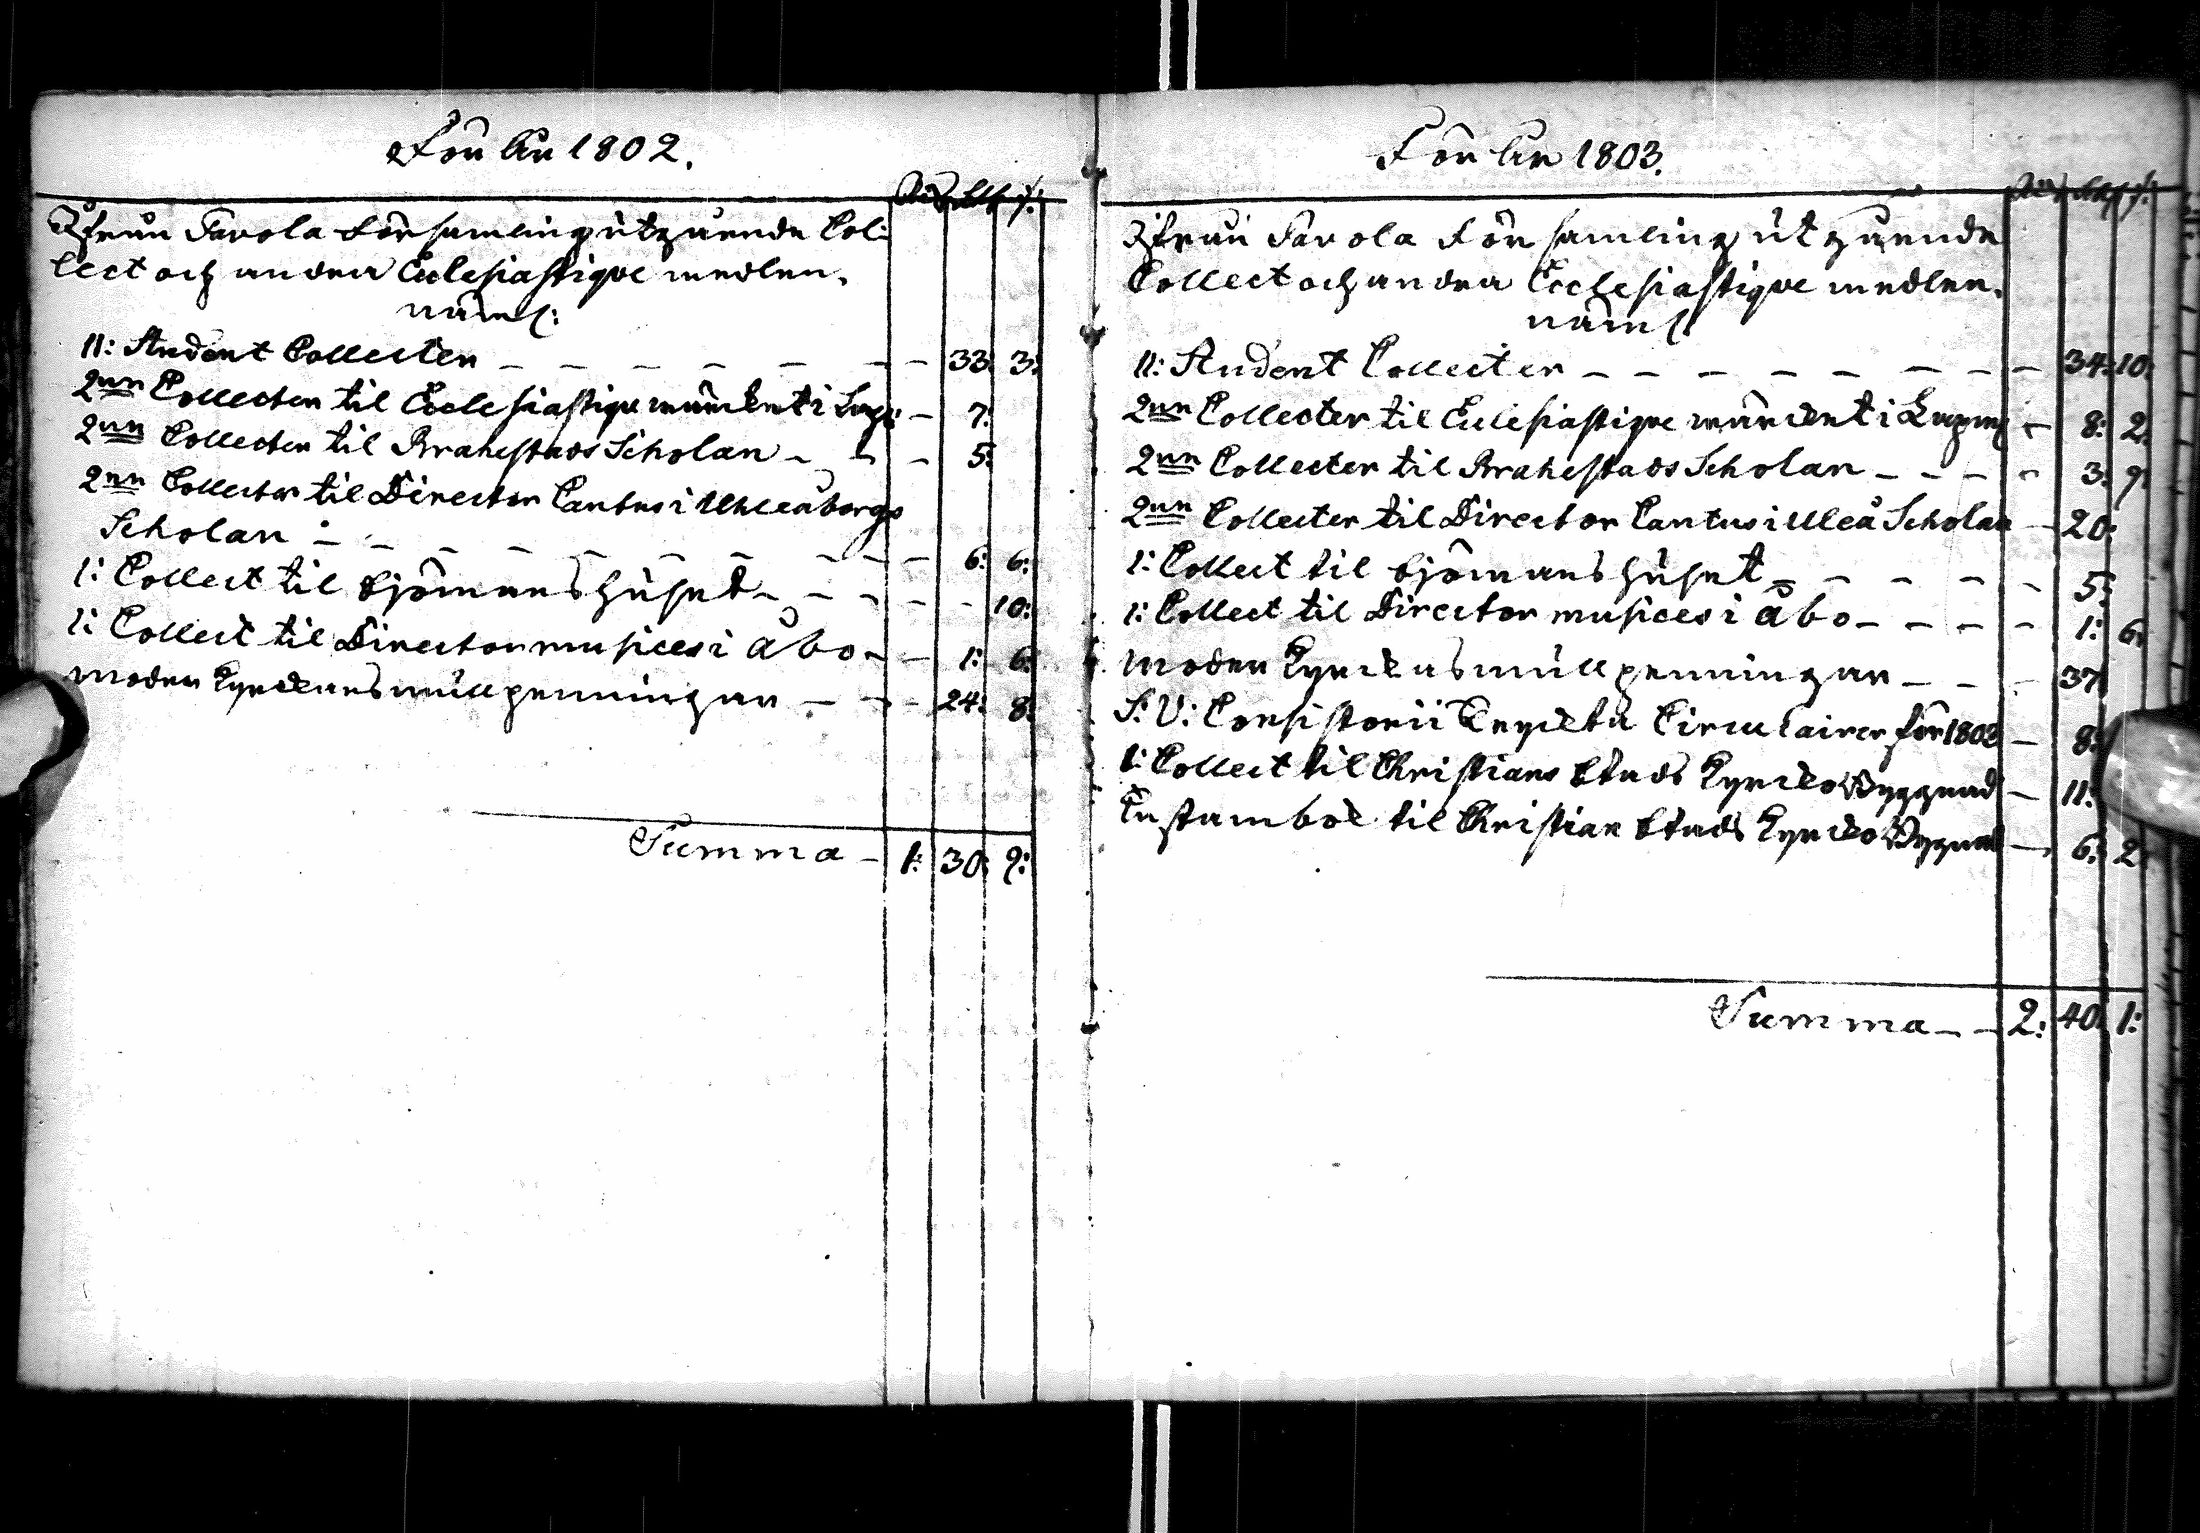 För År 1802.
Rd sk rst
Ifrån Savola Församling utgående Col:
lect och andra Ecclesiastique medlen,
näml:
11: Student Collecter 33: 3:
2nn Collecter til Ecclesiastique wärcket i 7:
2nn Collecter til Brahestads Scholan 5:
2nn Collecter til Director Cantus i Uhleåborgs
Scholan 6: 6:
1: Collect til Sjömans huset 10:
1: Collect til Director musices i Åbo 1: 6:
Moder Kyrckans mullpenningar 24: 8:
Summa 1: 30: 9:
För År 1803.
Rd sk rst
Ifrån Savola Församling utgående
Collect och andra Ecclesiastique medlen,
näml:
11: Student Collecter 34: 10:
2nn Collecter til Ecclesiastique wärcket i 8: 2:
2nn Collecter til Brahestads Scholan 3: 9:
2nn Collecter til Director Cantus i Uleå Scholan 20:
1: Collect til Sjömans huset 5:
1: Collect til Director musices i Åbo 1: 6:
Moder Kyrckans mullpenningar 37
S: V: Consistorii Tryckta Circulairer för 1803 8:
1: Collect til Christians Stads Kyrcko Byggnad 11:
til Christian Stads Kyrcko Byggnad 6: 2
Summa 2: 40: 1: